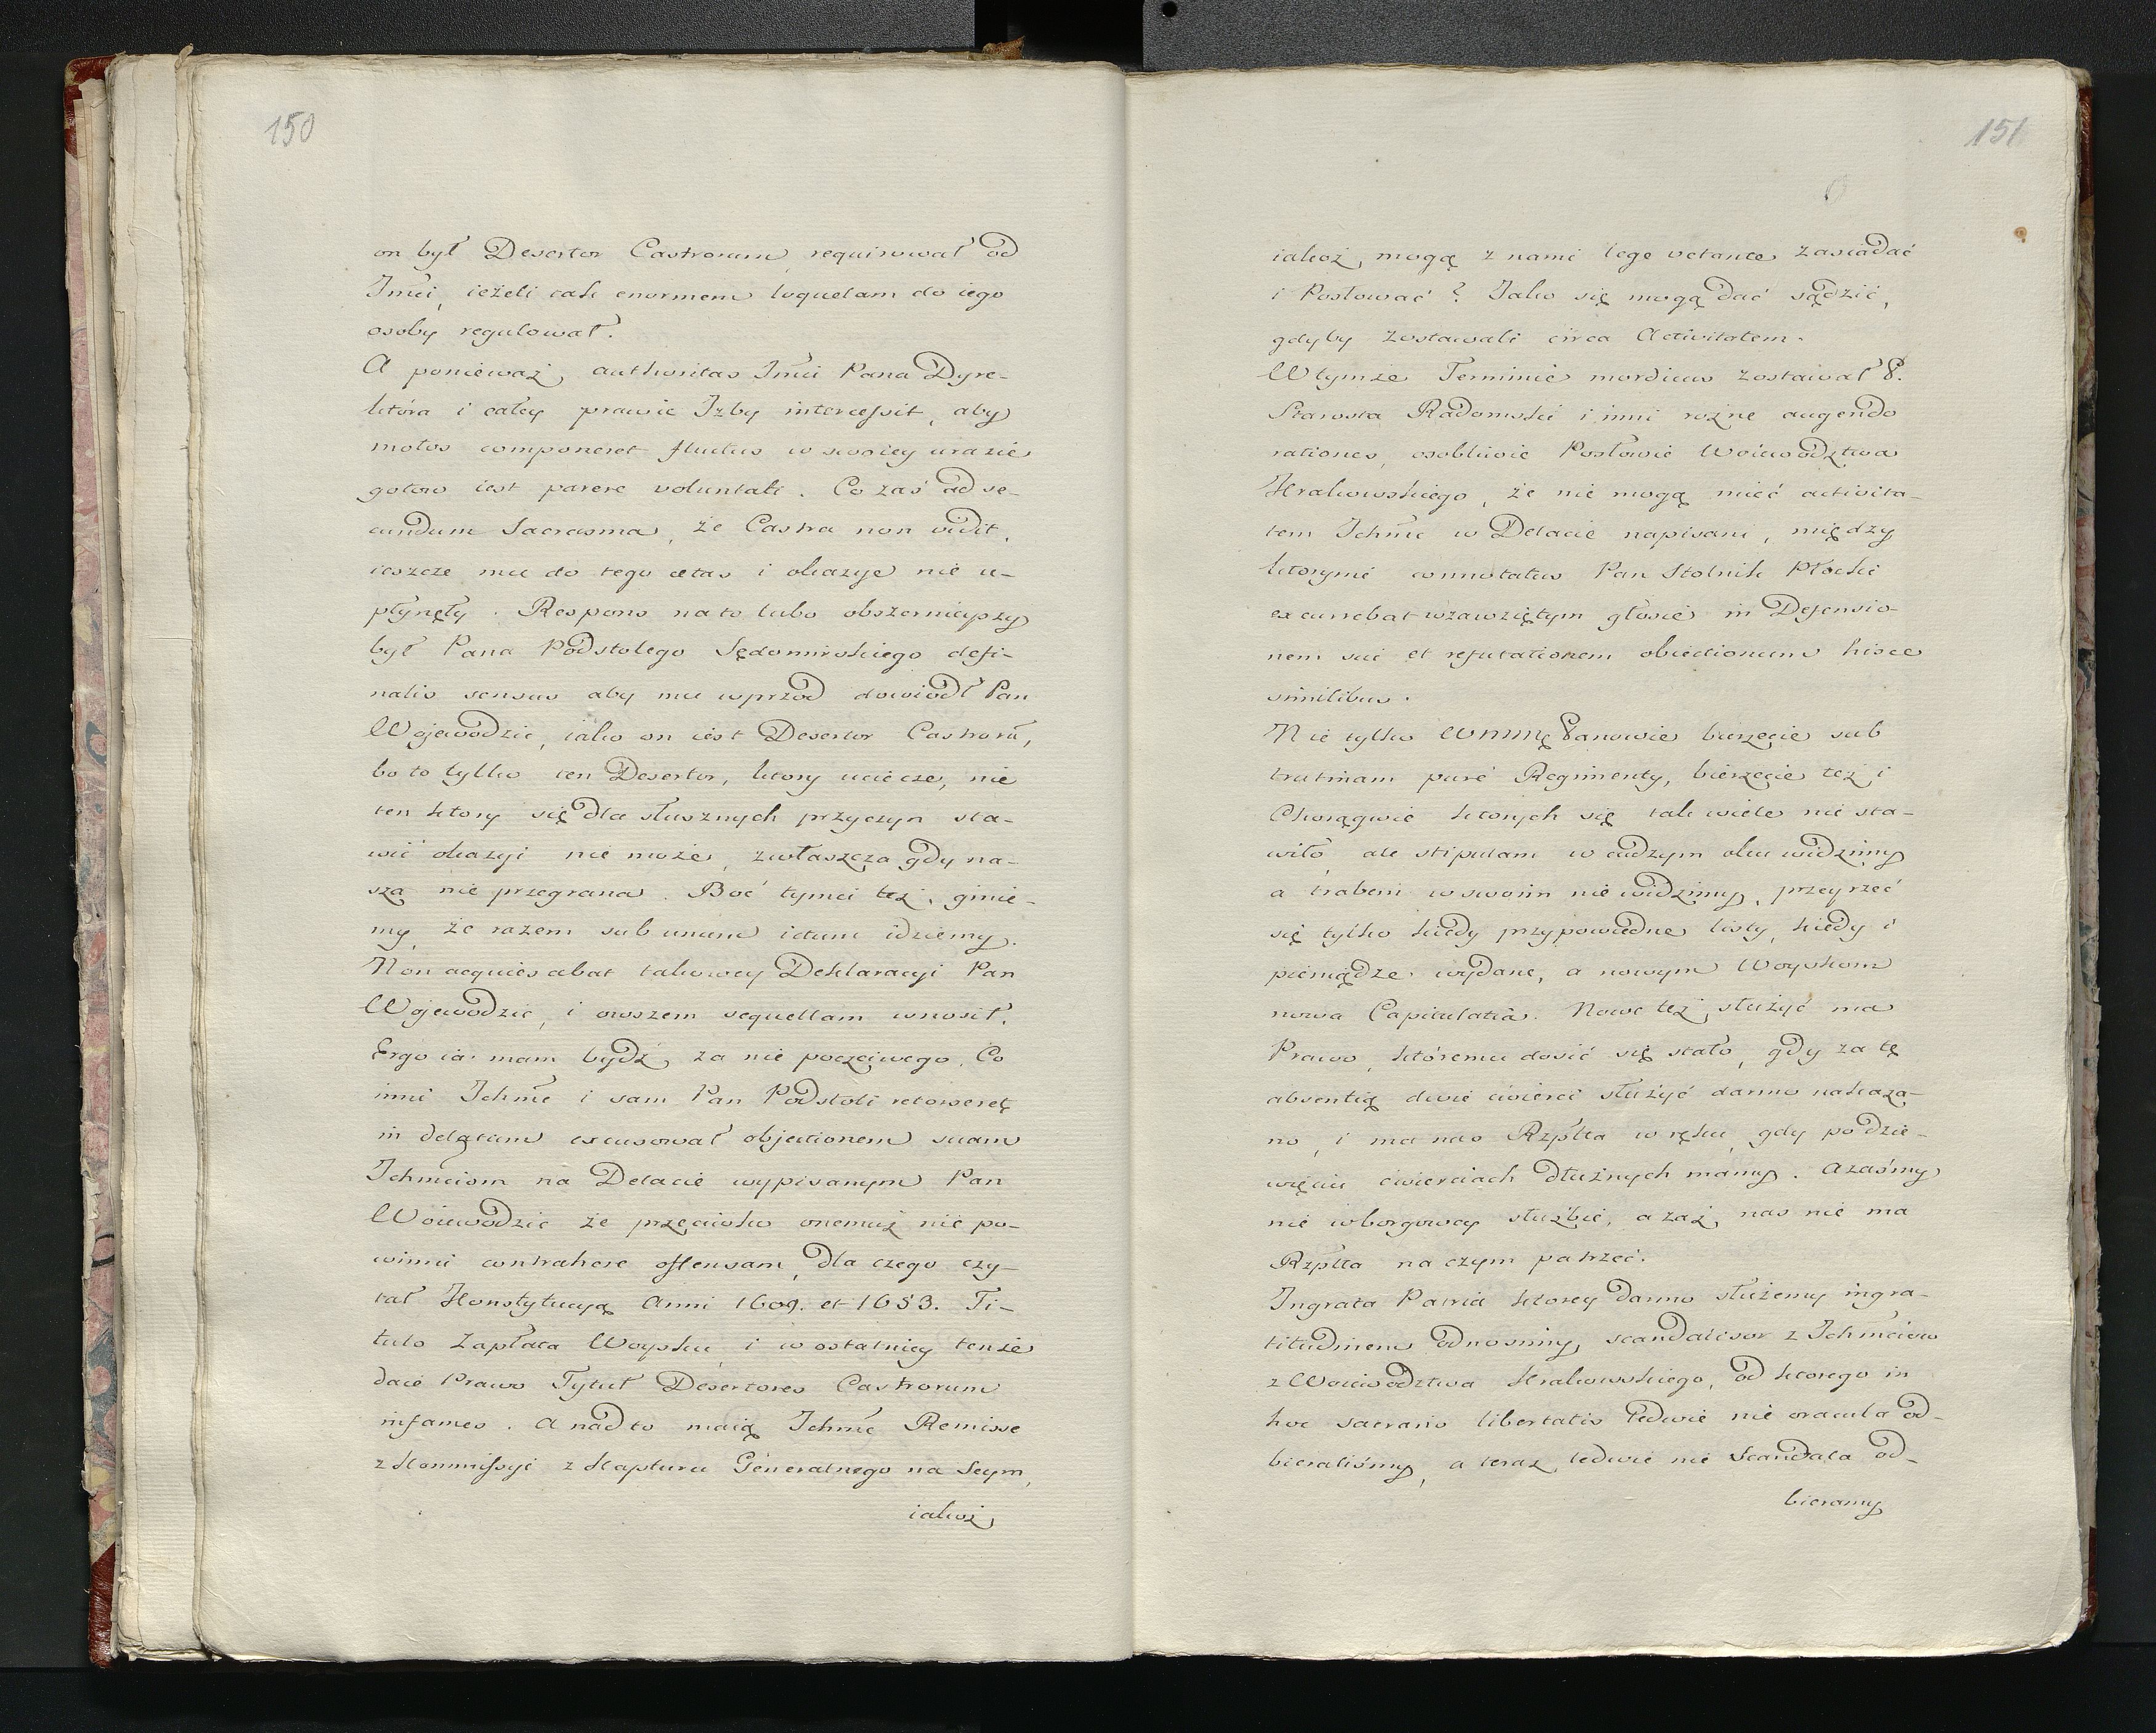 150
on był Desertor Castrorum, requirował od
Jmći, ieżeli tak enormem loquelam do iego
osoby regulował.
A ponieważ, authoritas Jmći Pana Dyre-
która i całey prawie Izby intercessit, aby
motos componeret fluctus w swoiey urazie
gotow iest parere voluntati. Co zaś ad se-
cundum Sacrasma, że Castra non vidit,
ieszcze mu do tego ætas i okazye nie u-
płynęły. Respons na to lubo obszernieyszy
był Pana Podstolego Sędomirskiego defi-
nalis sensus aby mu wprzod dowiodł Pan
Wojewodzic, iako on iest Desertor Castrorū,
bo to tylko ten Desertor, ktory uciecze, nie
ten ktory się dla słusznych przyczyn sta-
wić okazyi nie może, zwłaszcza gdy na-
sza nie przegrana. Boć tymci też, ginie-
my, że razem sub unum ictum idziemy.
Non acquiescabat takowey Deklaracyi Pan
Wojewodzic, i owszem sequellam wnosił,
Ergo ia mam bydź, za nie poczciwego, Co
inni Jchmć i sam Pan Podstoli retorserat
in delatum excusował objectionem suam
Jchmciom na Delacie wypisanym Pan
Woiewodzic że przeciwko onemuż nie po-
winni contrahere offensam, dla czego czy-
tał Konstytucyą Anni 1609. et 1653. Ti-
tulo Zapłata Woysku, i w ostatniey tenże
daie Prawo Tytuł Desertores Castrorum
infames. A nad to maią Jchmć Remisse
z Kommissyi z Kapturu Generalnego na Seym,
iakoż,
151
iakoż, mogą z nami lege vetante zasiadać
i Posłować? Jako się mogą dać sądzić,
gdyby zostawali circa Activitatem.
W tymże Terminie mordicus zostawał P.
Starosta Radomski i inni rożne augendo
rationes, osobliwie Posłowie Woiewodztwa
Krakowskiego, że nie mogą mieć activita-
tem Jchmć w Delacie napisani, między
ktorymi connotatus Pan Stolnik Płocki
excurrebat w zawziętym głosie in Defensio-
nem sui et refutationem obiectionum hisce
similibus.
Nie tylko WMMę Panowie bierzecie sub
trutinam puré Regimenty, bierzecie też i
Chorągwie ktorych się tak wiele nie sta-
wiło ale stipulam w cudzym oku widzimy
a trabem w swoim nie widzimy, przeyrzeć
się tylko kiedy przypowiedne listy, kiedy i
pieniądze wydane, a nowym Woyskom
nowa Capitulatia. Nowe też, służyć ma
Prawo, któremu dosić się stało, gdy za tę
absentią dwie cwierci służyć darmo nakaza-
no, i ma nas Rzpltta w ręku, gdy po dzie-
więciu cwierciach dłużnych mamy. Azaśmy
nie w borgowey służbie, a zaż, nas nie ma
Rzpltta na czym patrzeć.
Ingrata Patria ktorey darmo służemy ingra-
titudinem odnosimy, scandalisor z Jchmciow
z Woiewodztwa Krakowskiego, od ktorego in
hoc sacrario libertatis ledwie nie oracula od-
bieraliśmy, a teraz, ledwie nie Scandala od-
bieramy